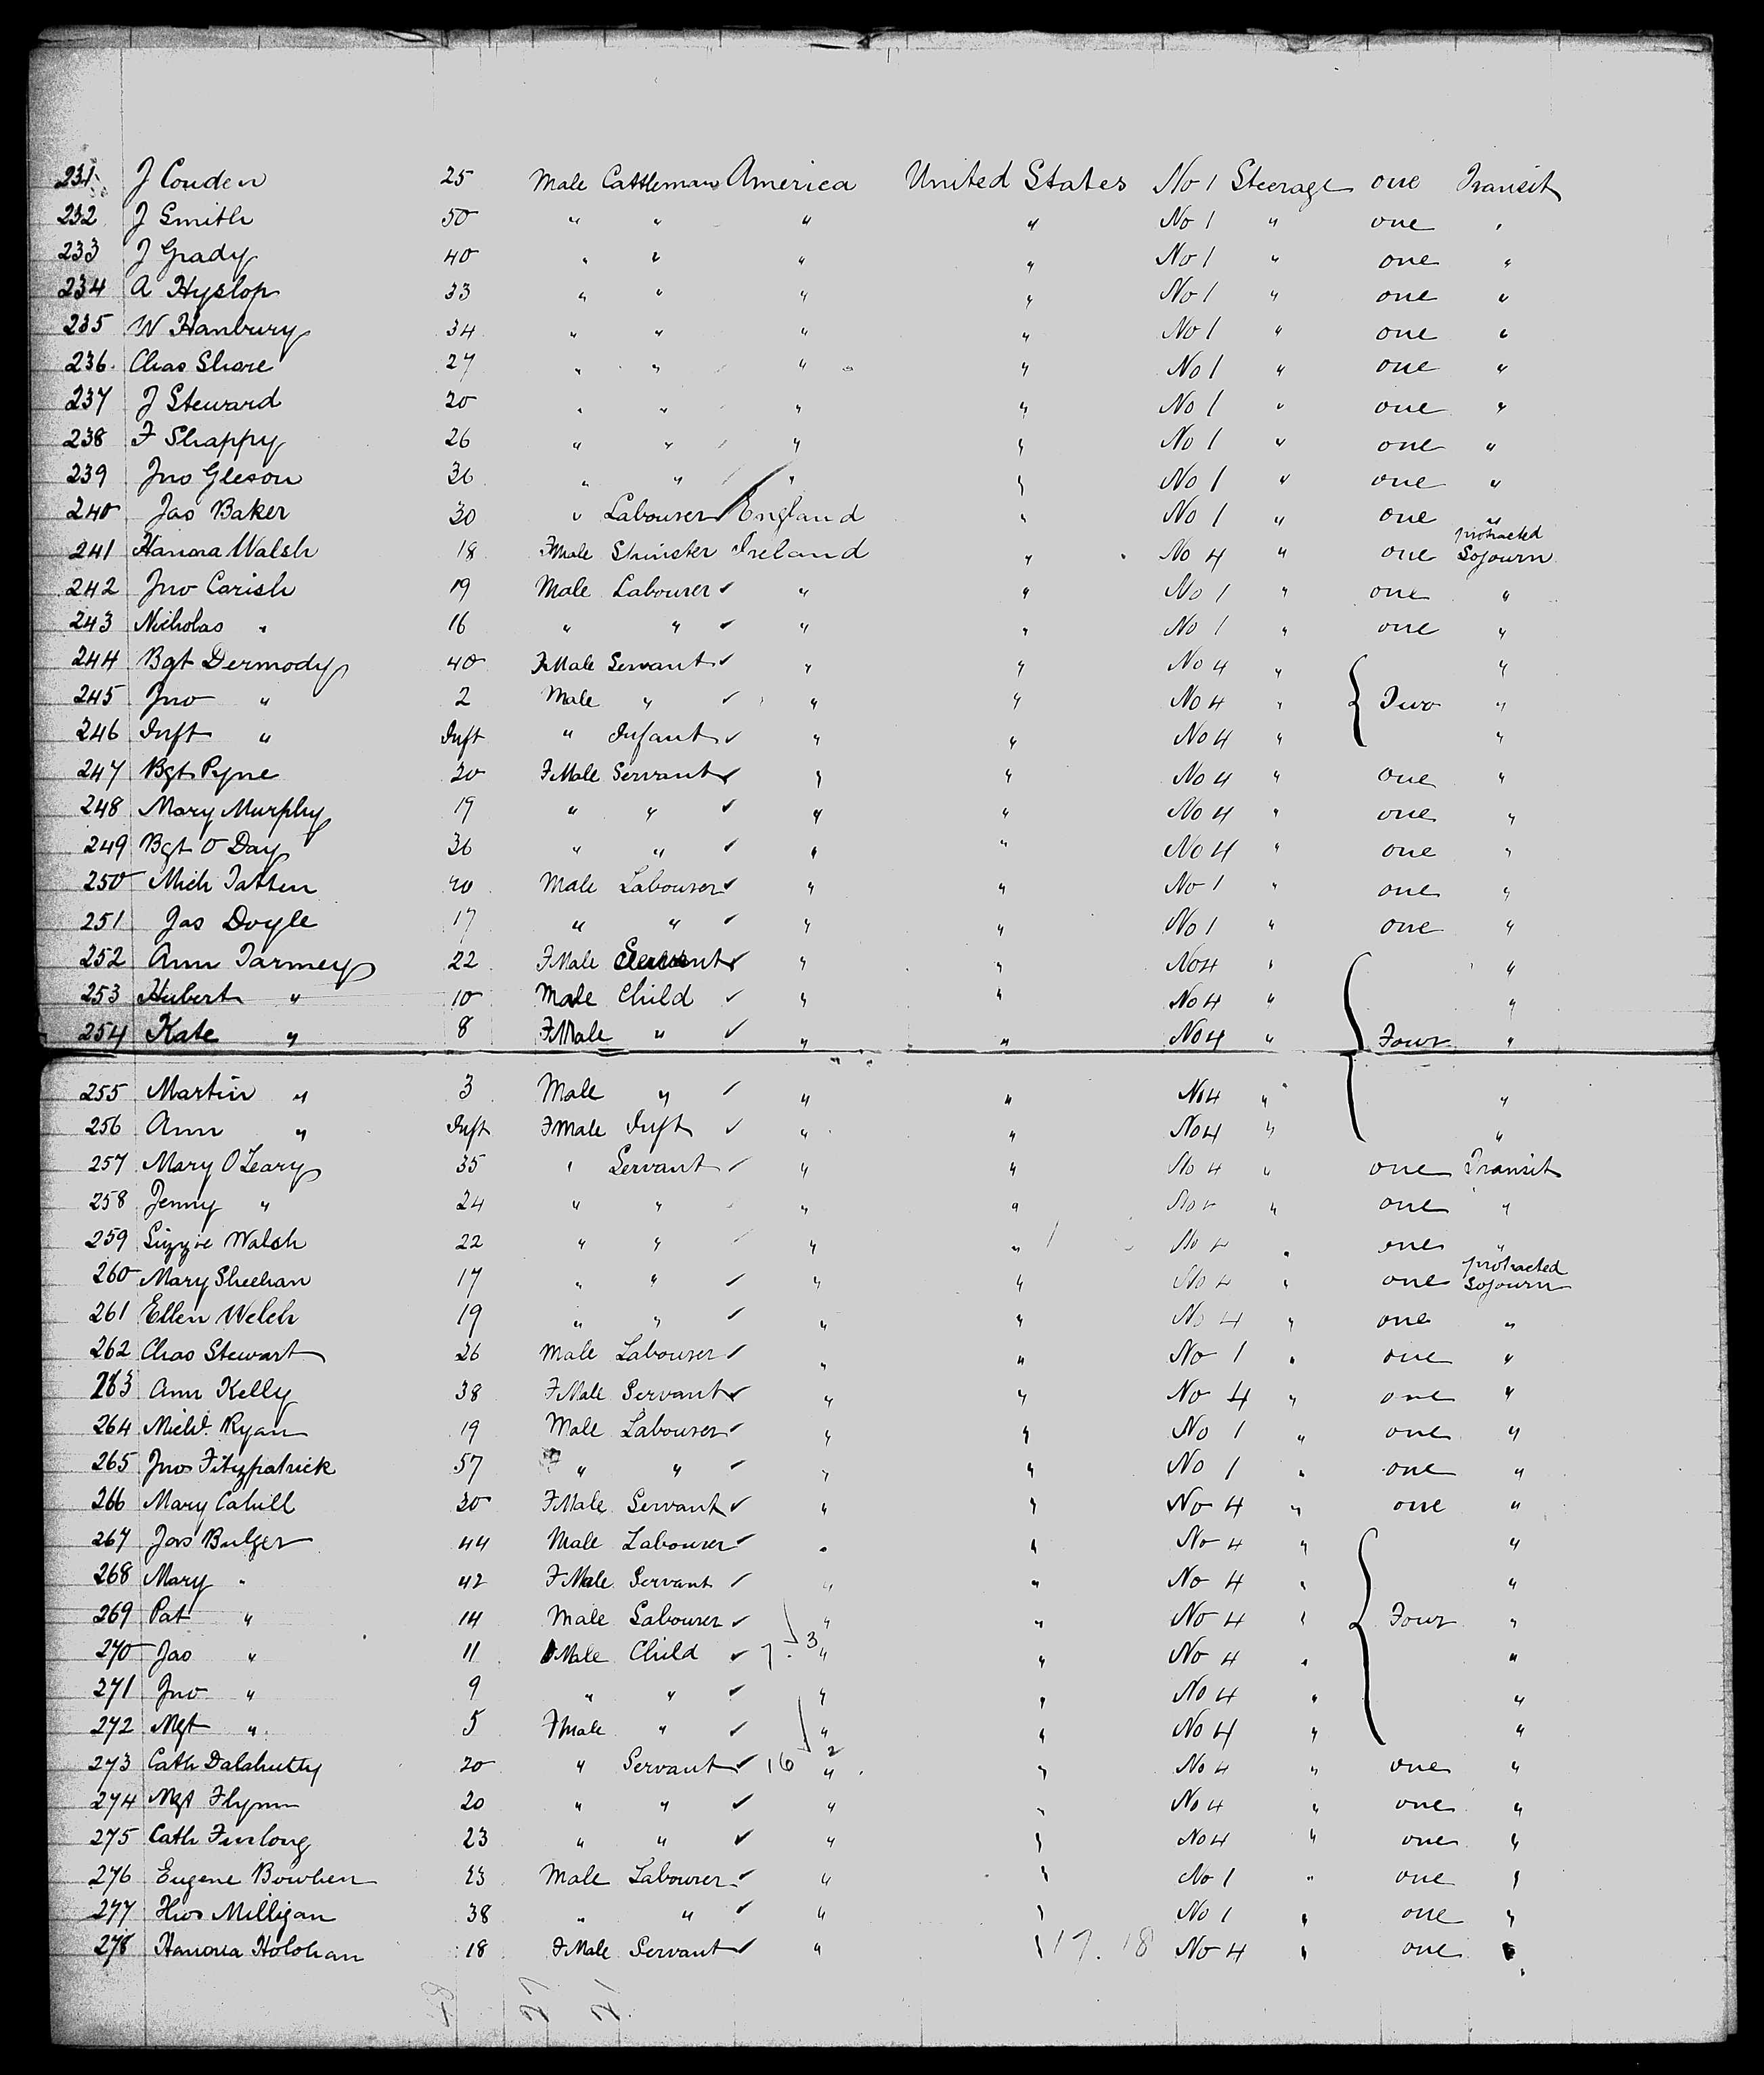 231 J Couden 25 Male Cattleman America United States No 1 Steerage one Transit
232 J Smith 50 " " " " No 1 " one "
233 J Grady 40 " " " " No 1 " one "
234 A Hyslop 33 " " " " No 1 " one "
235 W Hanbury 34 " " " " No 1 " one "
236. Chas Shore 27 " " " " No 1 " one "
237 J Steward 20 " " " " No 1 " one "
238 F Shappy 26 " " " " No 1 " one "
239 Jno Gleson 36 " " " " No 1 " one "
240 Jas Baker 30 " Labourer England " No 1 " one "
241 Hanora Walsh 18 FMale Spinster Ireland " No 4 " one protracted Sojourn
242 Jno Carish 19 Male Labourer ✓ " " No 1 " one "
243 Nicholas " 16 " " ✓ " " No 1 " one "
244 Bgt Dermody 40 FMale Servant ✓ " " No 4 " "
245 Jno " 2 Male " ✓ " " No 4 " Two "
246 Inft " Inft " Infant ✓ " " No 4 " "
247 Bgt Pyne 20 FMale Servant ✓ " " No 4 " one "
248 Mary Murphy 19 " " ✓ " " No 4 " one "
249 Bgt O Day 36 " " ✓ " " No 4 " one "
250 Mich Tatten 40 Male Labourer ✓ " " No 1 " one "
251 Jas Doyle 17 " " ✓ " " No 1 " one "
252 Ann Tarmey 22 FMale Servant ✓ " " No 4 " "
253 Hubert " 10 Male Child ✓ " " No 4 " "
254 Kate " 8 FMale " ✓ " " No 4 " Four "
255 Martin " 3 Male " ✓ " " No 4 " "
256 Ann " Inft FMale Inft ✓ " " No 4 " "
257 Mary O'Leary 35 " Servant ✓ " " No 4 " one Transit
258 Jenny " 24 " " " " No 4 " one "
259 Lizzie Walsh 22 " " " " No 4 " one "
260 Mary Sheehan 17 " " ✓ " " No 4 " one protracted Sojourn
261 Ellen Welch 19 " " ✓ " " No 4 " one "
262 Chas Stewart 26 Male Labourer ✓ " " No 1 " one "
263 Ann Kelly 38 FMale Servant ✓ " " No 4 " one "
264 Michl. Ryan 19 Male Labourer ✓ " " No 1 " one "
265 Jno Fitzpatrick 57 " " ✓ " " No 1 " one "
266 Mary Cahill 30 FMale Servant ✓ " " No 4 " one "
267 Jas Bulger 44 Male Labourer ✓ " " No 4 " "
268 Mary " 42 FMale Servant ✓ " " No 4 " "
269 Pat " 14 Male Labourer ✓ " " No 4 " Four "
270 Jas " 11 Male Child ✓ 7. 3 " " No 4 " "
271 Jno " 9 " " ✓ " " No 4 " "
272 Mgt " 5 FMale " ✓ " " No 4 " "
273 Cath Dalahutty 20 " Servant ✓ 16 2 " " No 4 " one "
274 Mgt Flynn 20 " " ✓ " " No 4 " one "
275 Cath Furlong 23 " " ✓ " " No 4 " one "
276 Eugene Bowhen 23 Male Labourer ✓ " " No 1 " one "
277 Thos Milligan 38 " " ✓ " " No 1 " one "
278 Hanora Holohan 18 FMale Servant ✓ " " 17. 18 No 4 " one "